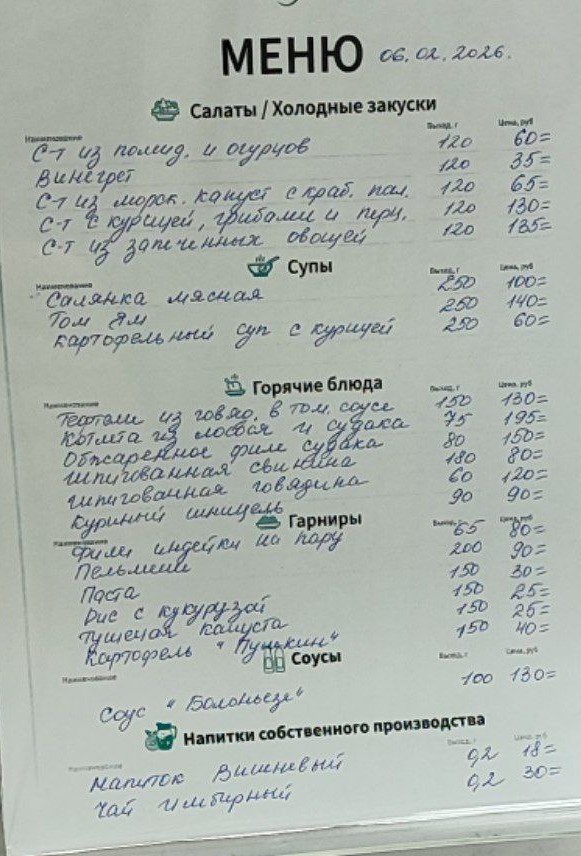 МЕНЮ 06.02.2026.
Салаты / Холодные закуски
Наименование Выход, г Цена, руб
С-т из помид. и огурцов 120 60=
Винегрет 120 35=
С-т из морск. капуст с краб. пал. 120 65=
С-т с курицей, грибами и перц. 120 130=
С-т из запеченных овощей 120 135=
Супы
Наименование Выход, г Цена, руб
Салянка мясная 250 100=
Том Ям 250 140=
Картофельный суп с курицей 250 60=
Горячие блюда
Наименование Выход, г Цена, руб
Тефтели из говяд. в том. соусе 150 130=
Котлета из лосося и судака 75 195=
Обжаренное филе судака 80 150=
Шпигованная свинина 180 80=
Шпигованная говядина 60 120=
Куриный шницель 90 90=
Гарниры
Наименование Выход, г Цена, руб
Филе индейки на пару 65 80=
Пельмени 200 90=
Паста 150 30=
Рис с кукурузой 150 25=
Тушеная капуста 150 25=
Картофель "Пушкин" 150 40=
Соусы
Наименование Выход, г Цена, руб
Соус "Болоньезе" 100 130=
Напитки собственного производства
Наименование Выход, г Цена, руб
Напиток Вишневый 0,2 18=
Чай имбирный 0,2 30=